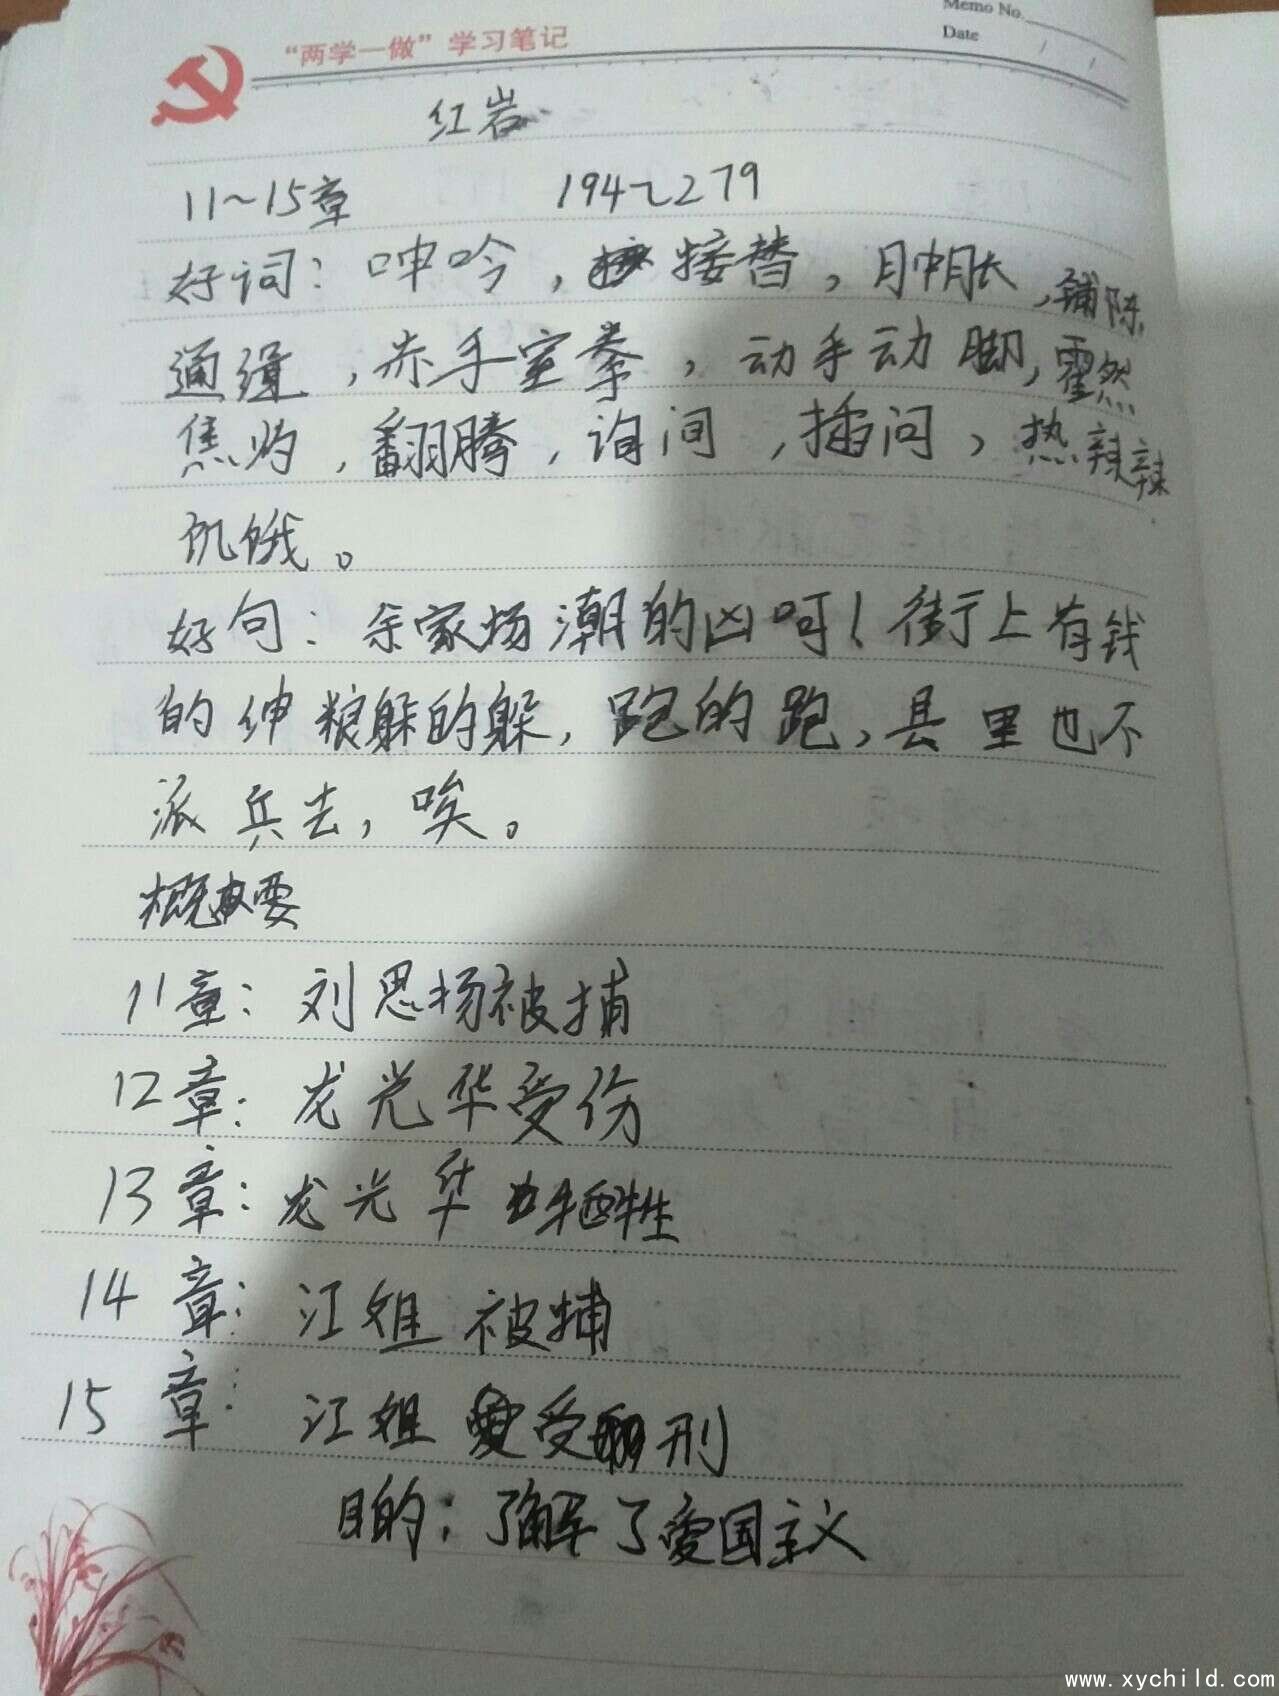 Memo No.
Date / /
“两学一做”学习笔记
红岩
11~15章 194~279
好词：呻吟，接替，肿胀，铺陈，
通缉，赤手空拳，动手动脚，霍然
焦灼，翻腾，询问，插问，热辣辣
饥饿。
好句：余家场潮的凶呵！街上有钱
的绅粮躲的躲，跑的跑，县里也不
派兵去，唉。
概要
11章：刘思扬被捕
12章：龙光华受伤
13章：龙光华牺牲
14章：江姐被捕
15章：江姐受刑
目的：了解了爱国主义
www.xychild.com